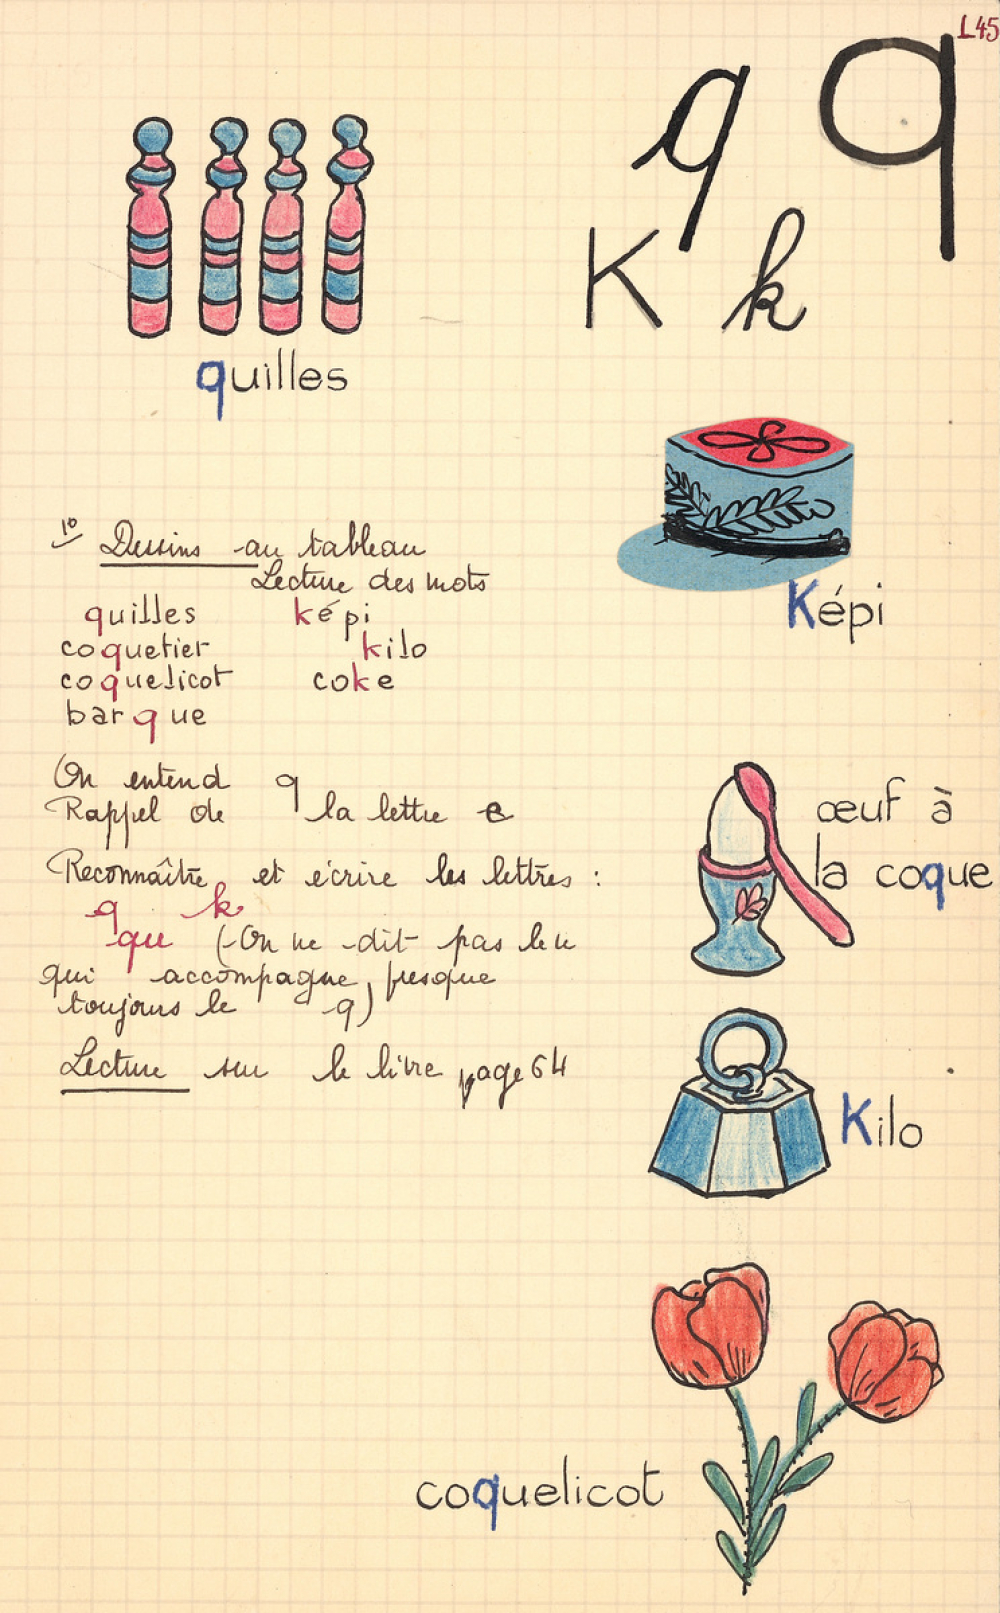 L45
q q
K k
quilles
Képi
1º Dessins au tableau
Lecture des mots
quilles képi
coquetier kilo
coquelicot coke
barque
On entend q
Rappel de la lettre c
Reconnaître et écrire les lettres :
q k
qu (On ne dit pas le u
qui accompagne presque
toujours le q)
Lecture sur le livre page 64
œuf à
la coque
Kilo
coquelicot